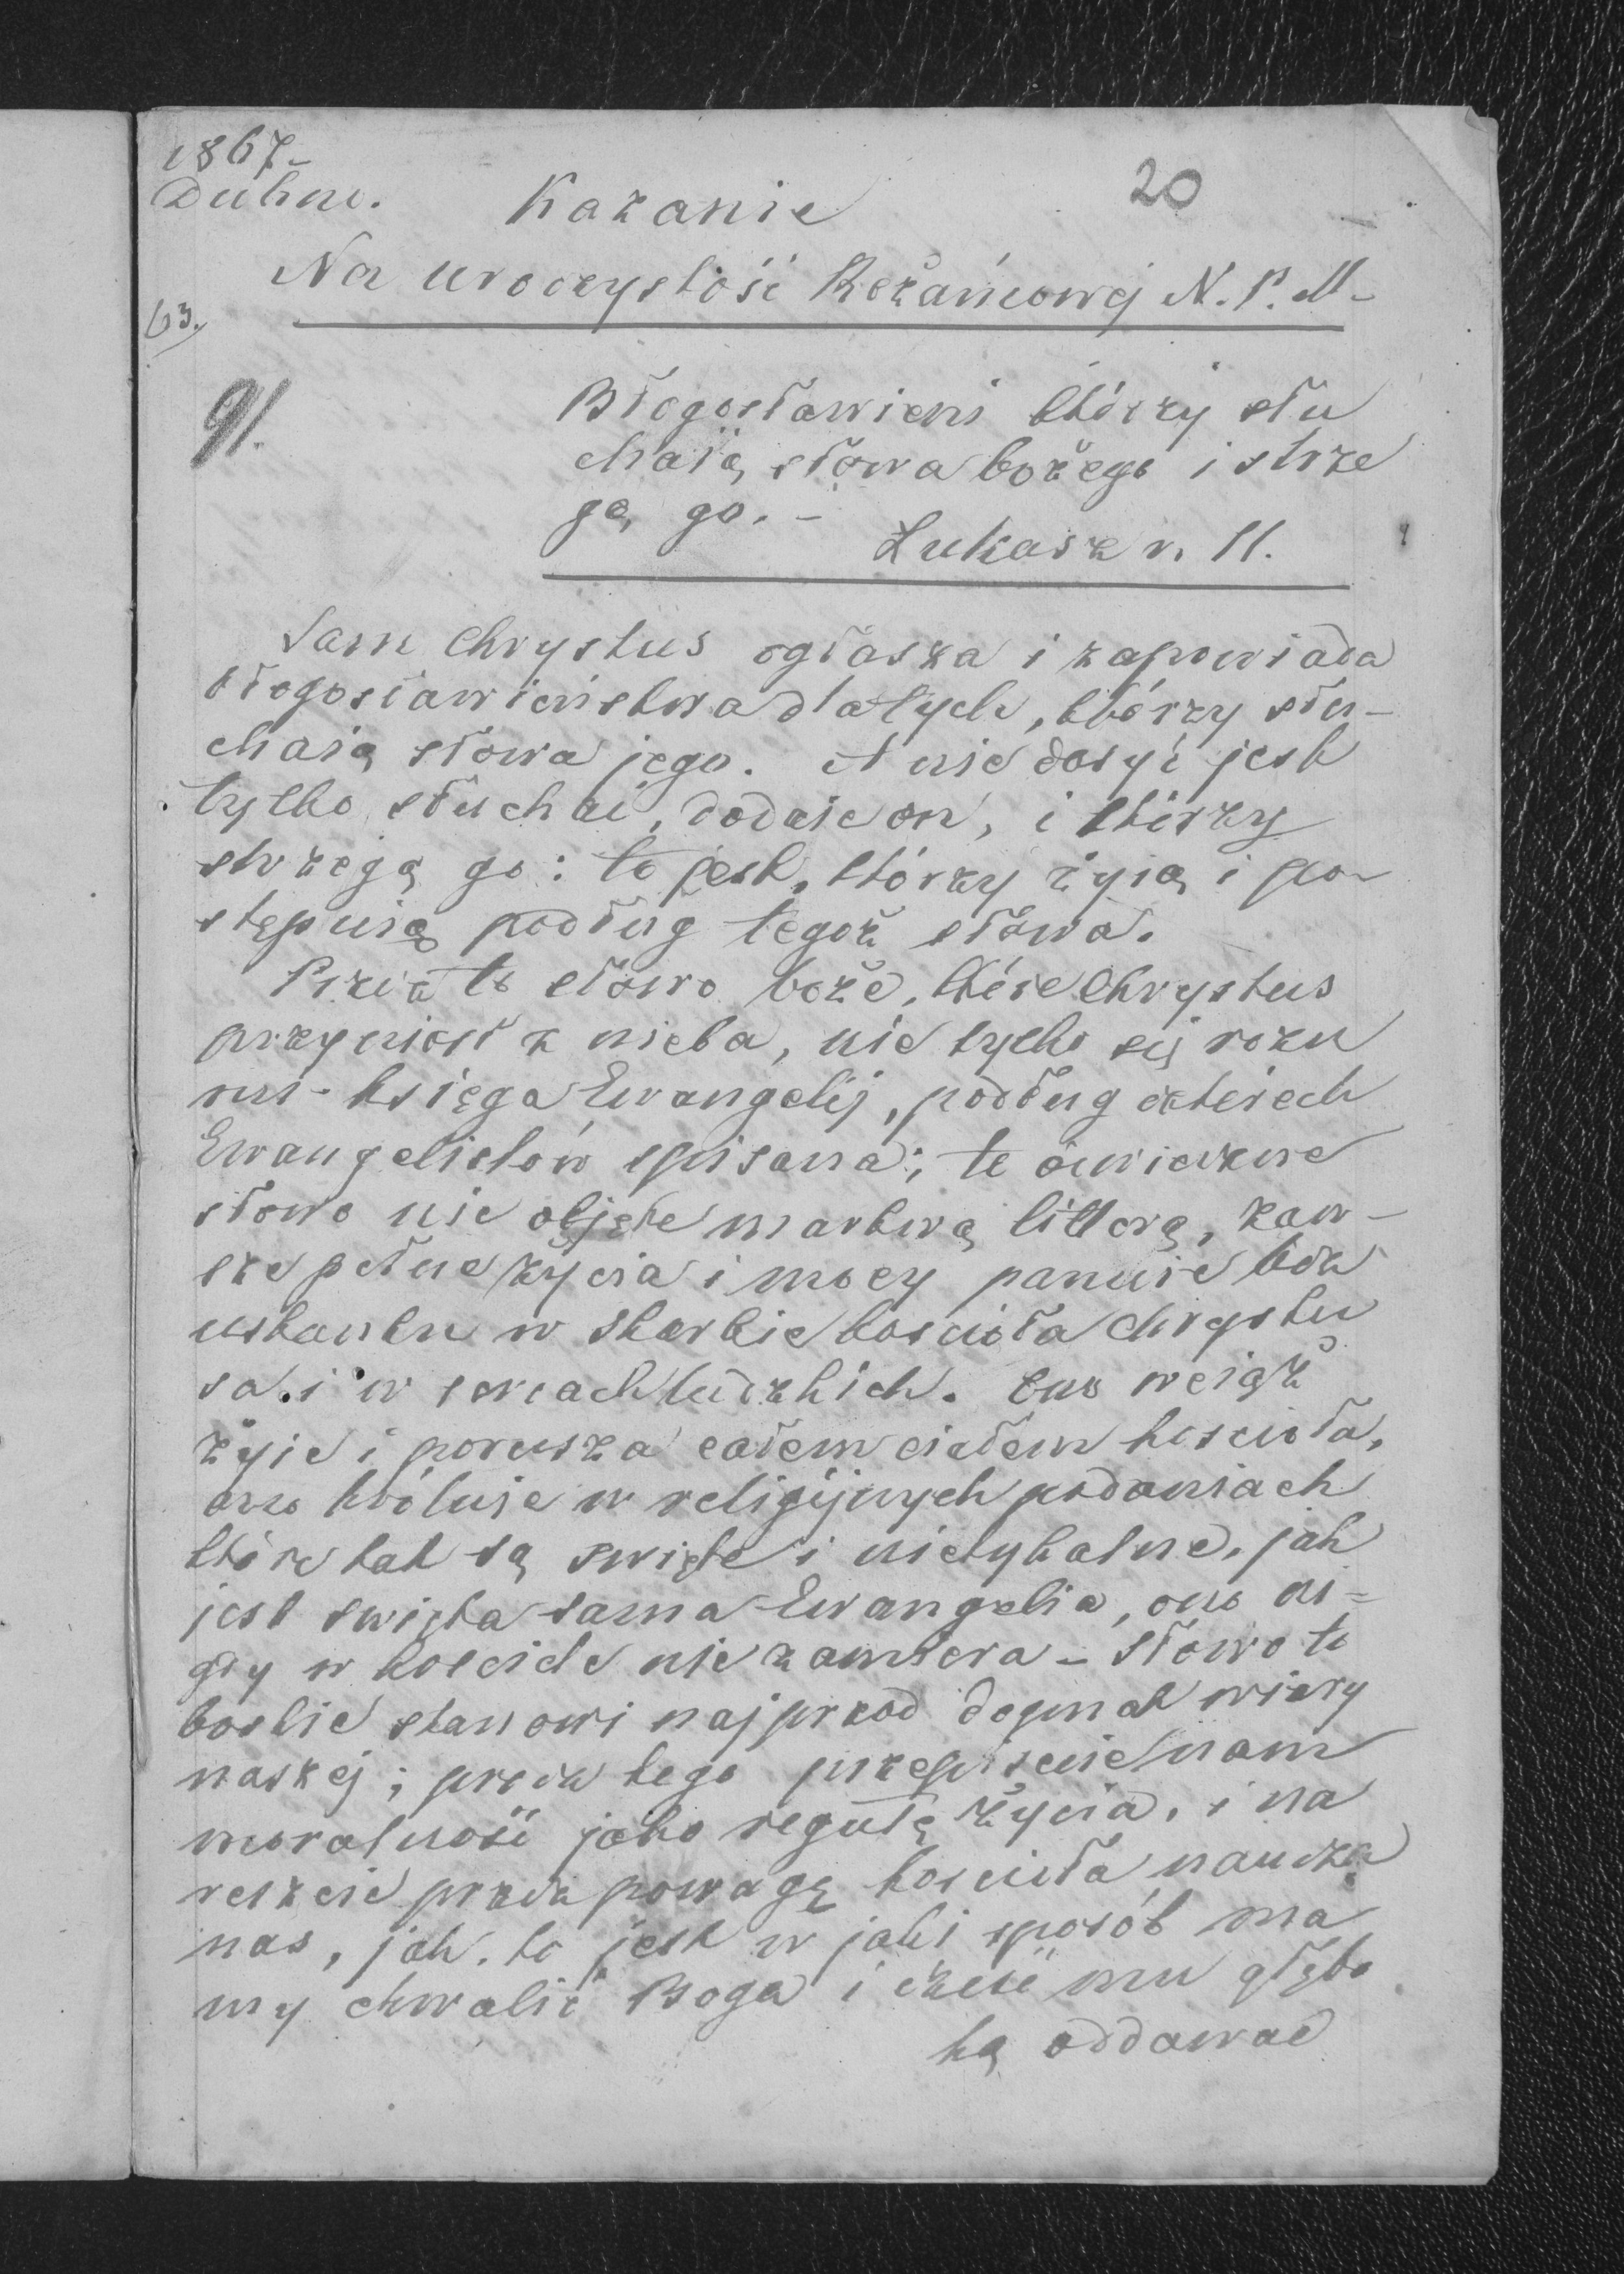 1867-
Dubno.
Kazanie
20
Na uroczystość Rożańcowej N. P. M-
63.
91.
Błogosławieni którzy słu
chaią słowa bożego i strze
gą go. -
Łukasz r. 11.
Sam Chrystus ogłasza i zapowiada
błogosławieństwa dla tych, którzy słu-
chaią słowa jego. A nie dosyć jest
tylko słuchać, dodaie on, i którzy
strzegą go: to jest, którzy żyią i po-
stępuią podług tegoż słowa.
Przez to słowo boże, które Chrystus
przyniosł z nieba, nie tylko się rozu
mi księga Ewangelij, podług czterech
Ewangelistów spisana; te
słowo nie objęte martwą litterą, zaw-
sze pełne życia i mocy panuie bez
ustanku w skarbie kościoła Chrystu
sa i w sercach ludzkich. Ono wciąż
żyie i porusza całem ciałem kościoła,
ono króluje w religijnych podaniach
które tak są swięte i nietykalne, jak
jest swięta sama Ewangelia, ono ni-
gdy w kościele nie zamiera - Słowo to
boskie stanowi najprzod dogmat wiary
naszej; prócz tego przepisuie nam
moralność jako regułę życia, i na
reszcie przez powagę kościoła naucza
nas, jak. to jest w jaki sposób ma
my chwalić Boga i cześć mu głębo
ką oddawać